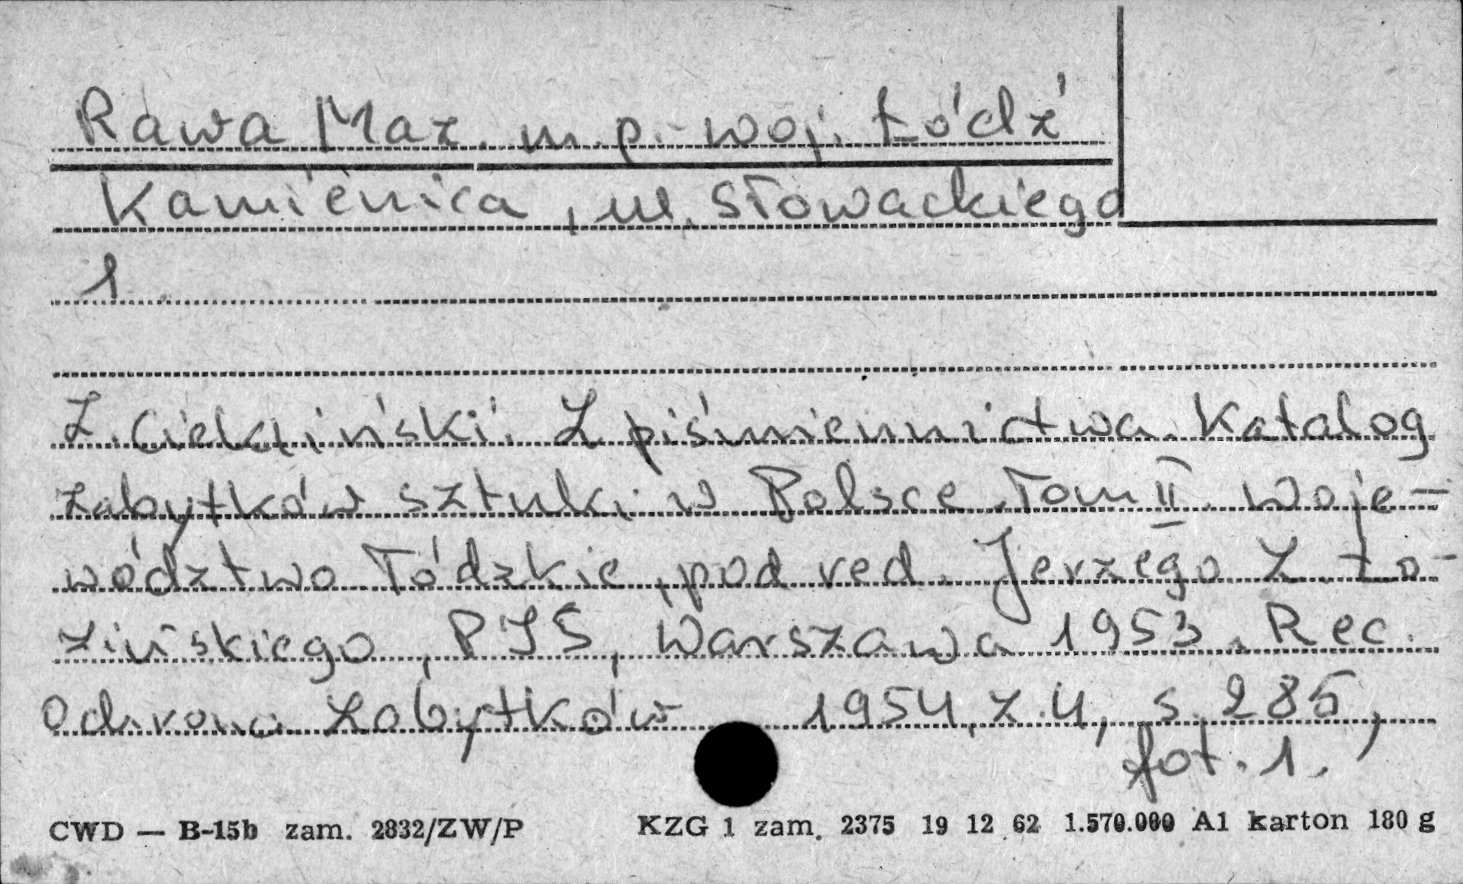 Rawa Maz. m. p. woj. Łódź
Kamienica, ul. Słowackiego
1
Z. Cieklinski. Z piśmiennictwa. Katalog
zabytków sztuki w Polsce. Tom II. Woje-
wództwo łódzkie, pod red. Jerzego Z. Ło-
zińskiego, PIS, Warszawa 1953. Rec.
Ochrona Zabytków 1954, z. 4, s. 285,
fot. 1.
CWD — B-15b zam. 2832/ZW/P KZG 1 zam. 2375 19 12 62 1.570.000 A1 karton 180 g